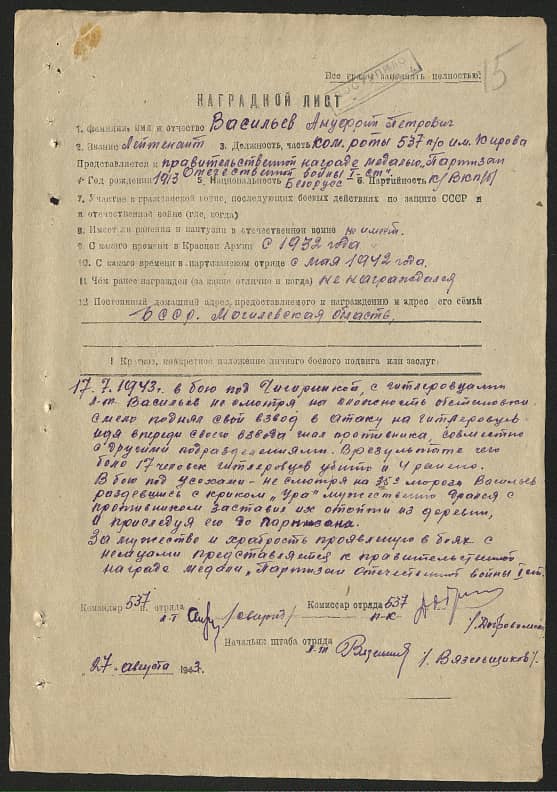 Все графы заполнять полностью.
ПОСТУПИЛО
15
НАГРАДНОЙ ЛИСТ
1. Фамилия, имя и отчество Васильев Ануфрий Петрович
2. Звание Лейтенант 3. Должность, часть ком. роты 537 п/о им. Кирова
Представляется к правительственной награде медалью "Партизан
Отечественной войны I-ст"
4 Год рождения 1913 5. Национальность Белорус 6. Партийность к/ВКП(б)
7. Участие в гражданской войне, последующих боевых действиях по защите СССР и
в отечественной войне (где, когда)
8. Имеет ли ранения и контузии в отечественной войне не имеет.
9. С какого времени в Красной Армии с 1932 года
10. С какого времени в партизанском отряде с мая 1942 года.
11. Чем ранее награжден (за какие отличия и когда) не награждался
12 Постоянный домашний адрес, представляемого к награждению и адрес его семьи
БССР. Могилевская область,
I Краткое, конкретное изложение личного боевого подвига или заслуг:
17.7.1943г. в бою под Чигиринкой, с гитлеровцами
л-т Васильев не смотря на опасность обстановки
смело поднял свой взвод в атаку на гитлеровцев
идя впереди своего взвода гнал противника, совместно
с другими подразделениями. В результате чего
было 17 человек гитлеровцев убито и 4 ранено.
В бою под Усохами - не смотря на 35° мороза Васильев
раздевшись с криком "Ура" мужественно дрался с
противником заставил их отойти из деревни,
и преследуя его до
За мужество и храбрость проявленую в боях с
немцами представляется к правительственной
награде медали "Партизан Отечественной войны I ст.
Командир 537 п. отряда Комиссар отряда 537
л-т п-к
Начальник штаба отряда
л-т /. Вязельщиков/.
"27" августа 1943.